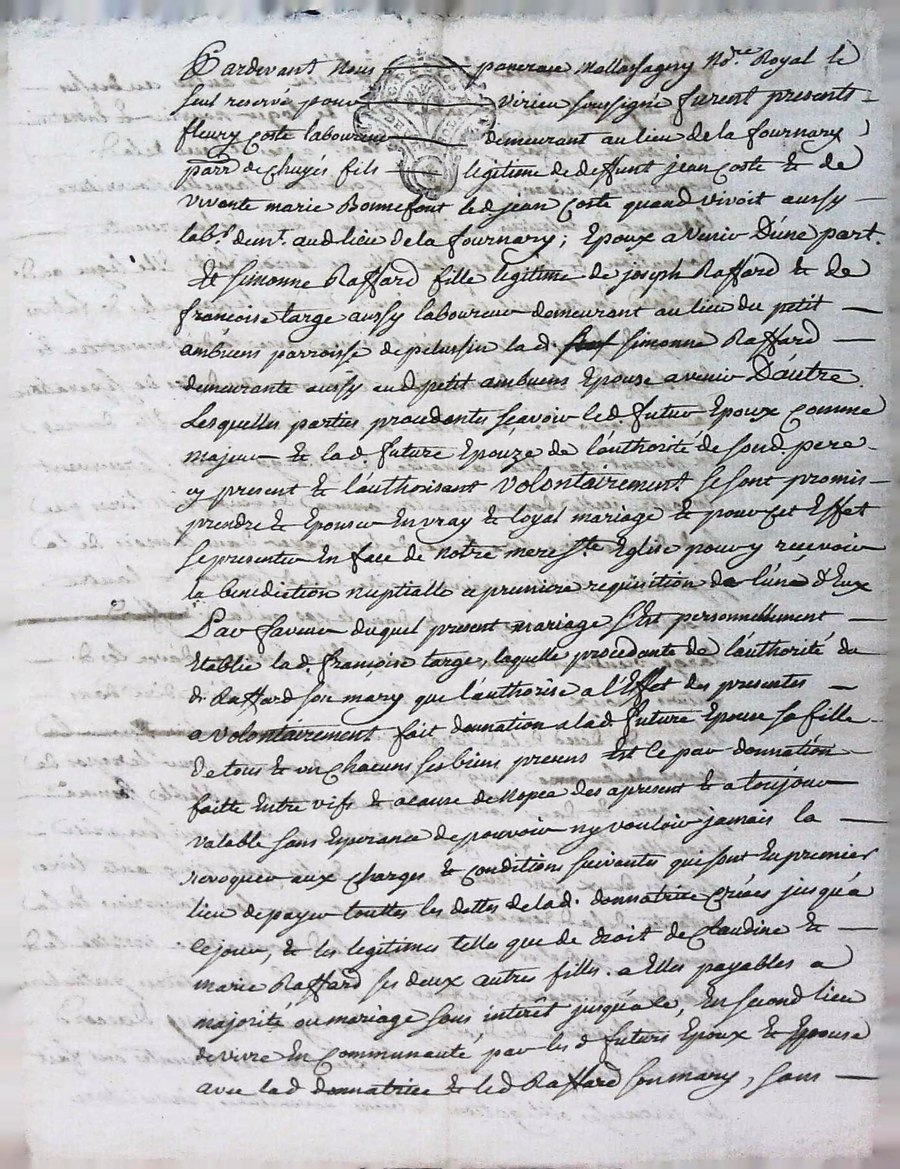 Pardevant Nous pancrace Mallassagny No.re Royal le
seul reservé pour virieu soussigné furent presents
fleury coste laboureur demeurant au lieu de la fournary
parr de Chuyés fils legitime de deffunt jean coste & de
vivante marie Bonnefont led jean coste quand vivoit aussy
lab.r dem.t aud lieu de la fournary ; Epoux a venir D'úne part.
Et simonne Raffard fille legitime de joseph Raffard & de
françoise targe aussy laboureur demeurant au lieu du petit
ambuens parroisse de pelussin lad. simonne Raffard
demeurante aussy aud petit ambuens Epouse a venir D'aútre
Lesquelles parties procedantes sçavoir led. futur Epoux comme
majeur & lad. future Epouze de l'authorité de sond. pere
cy present & l'authorisant volontairement se sont promis
prendre & Epouser En vray & loyal mariage & pour cet Effet
se presenter En face de notre mere Ste Eglise pour y recevoir
la benediction nuptialle a premiere requisition de l'une d'Eux
Par faveur duquel present mariage s'Est personnellement
Etablie lad. françoise targe, laquelle procedante de l'authorité du
d. Raffard son mary que l'authorise a l'Effet des presentes
a volontairement fait donnation a lad future Epouse sa fille
de tous & un chacuns ses biens presens Est ce par donnation
faitte Entre vifs & a cause de nopce des apresent & a toujour
valable sans Esperance de pouvoir ny vouloir jamais la
revoquer aux charges & conditions suivantes qui sont En premier
lieu de payer touttes les dettes de lad. donnatrice Créées jusqu'a
ce jour, & les legitimes telles que de droit de Claudine &
marie Raffard ses deux autres filles. a Elles payables a
majorité ou mariage sans interêt jusqu'a ce, En second lieu
de vivre En communauté par les d futurs Epoux & Epouse
avec lad donnatrice & led Raffard son mary, sans